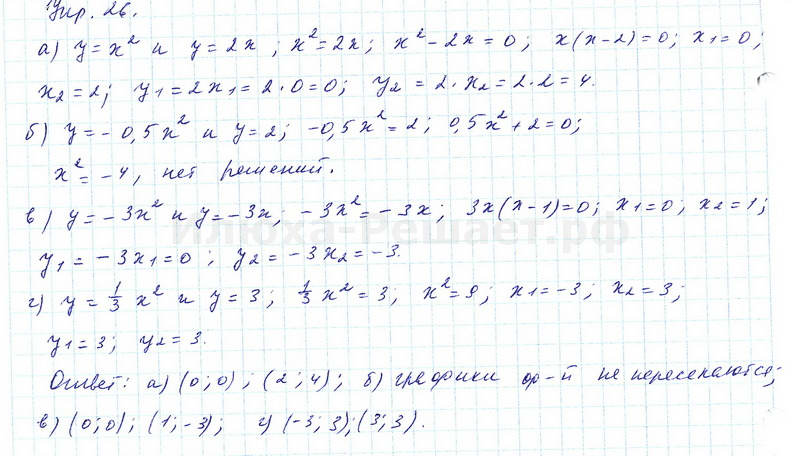 Упр. 26.
а) y = x² и y = 2x ; x² = 2x ; x² - 2x = 0 ; x(x-2) = 0 ; x₁ = 0 ;
x₂ = 2 ; y₁ = 2x₁ = 2·0 = 0 ; y₂ = 2·x₂ = 2·2 = 4.
б) y = - 0,5x² и y = 2 ; -0,5x² = 2 ; 0,5x² + 2 = 0 ;
x² = -4 , нет решений.
в) y = -3x² и y = -3x ; -3x² = -3x ; 3x(x-1) = 0 ; x₁ = 0 ; x₂ = 1 ;
илюха-Решает.рф
y₁ = -3x₁ = 0 ; y₂ = -3x₂ = -3.
г) y = 1/3 x² и y = 3 ; 1/3 x² = 3 ; x² = 9 ; x₁ = -3 ; x₂ = 3 ;
y₁ = 3 ; y₂ = 3.
Ответ: а) (0;0) ; (2;4) ; б) графики ф-й не пересекаются;
в) (0;0) ; (1;-3) ; г) (-3;3) ; (3;3).